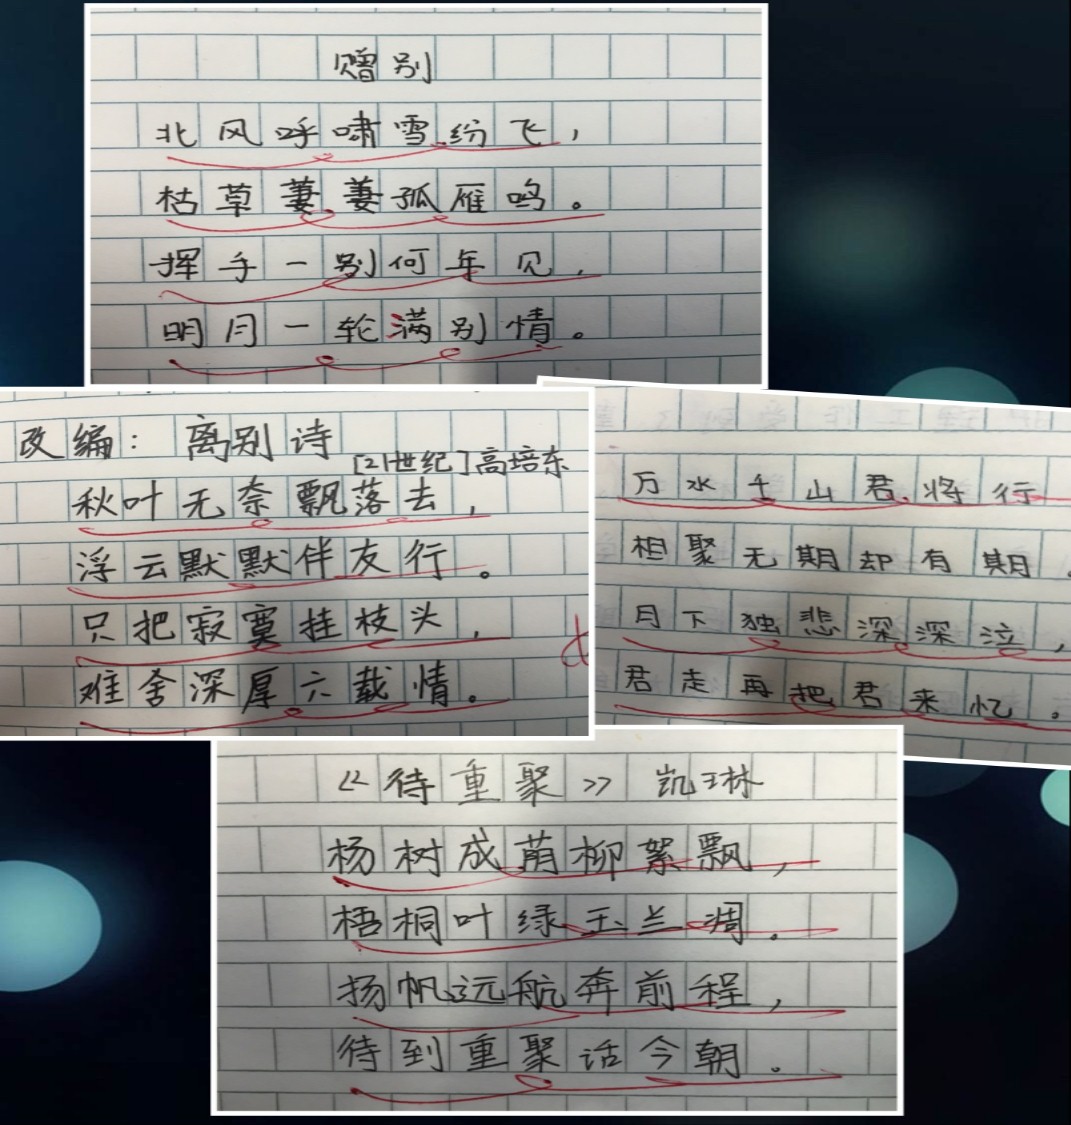 赠别
北风呼啸雪纷飞，
枯草萋萋孤雁鸣。
挥手一别何年见，
明月一轮满别情。
改编：离别诗
[21世纪]高培东
秋叶无奈飘落去，
浮云默默伴友行。
只把寂寞挂枝头，
难舍深厚六载情。
万水千山君将行
相聚无期却有期。
月下独悲深深泣，
君走再把君来忆。
《待重聚》 凯琳
杨树成萌柳絮飘，
梧桐叶绿玉兰凋。
扬帆远航奔前程，
待到重聚话今朝。